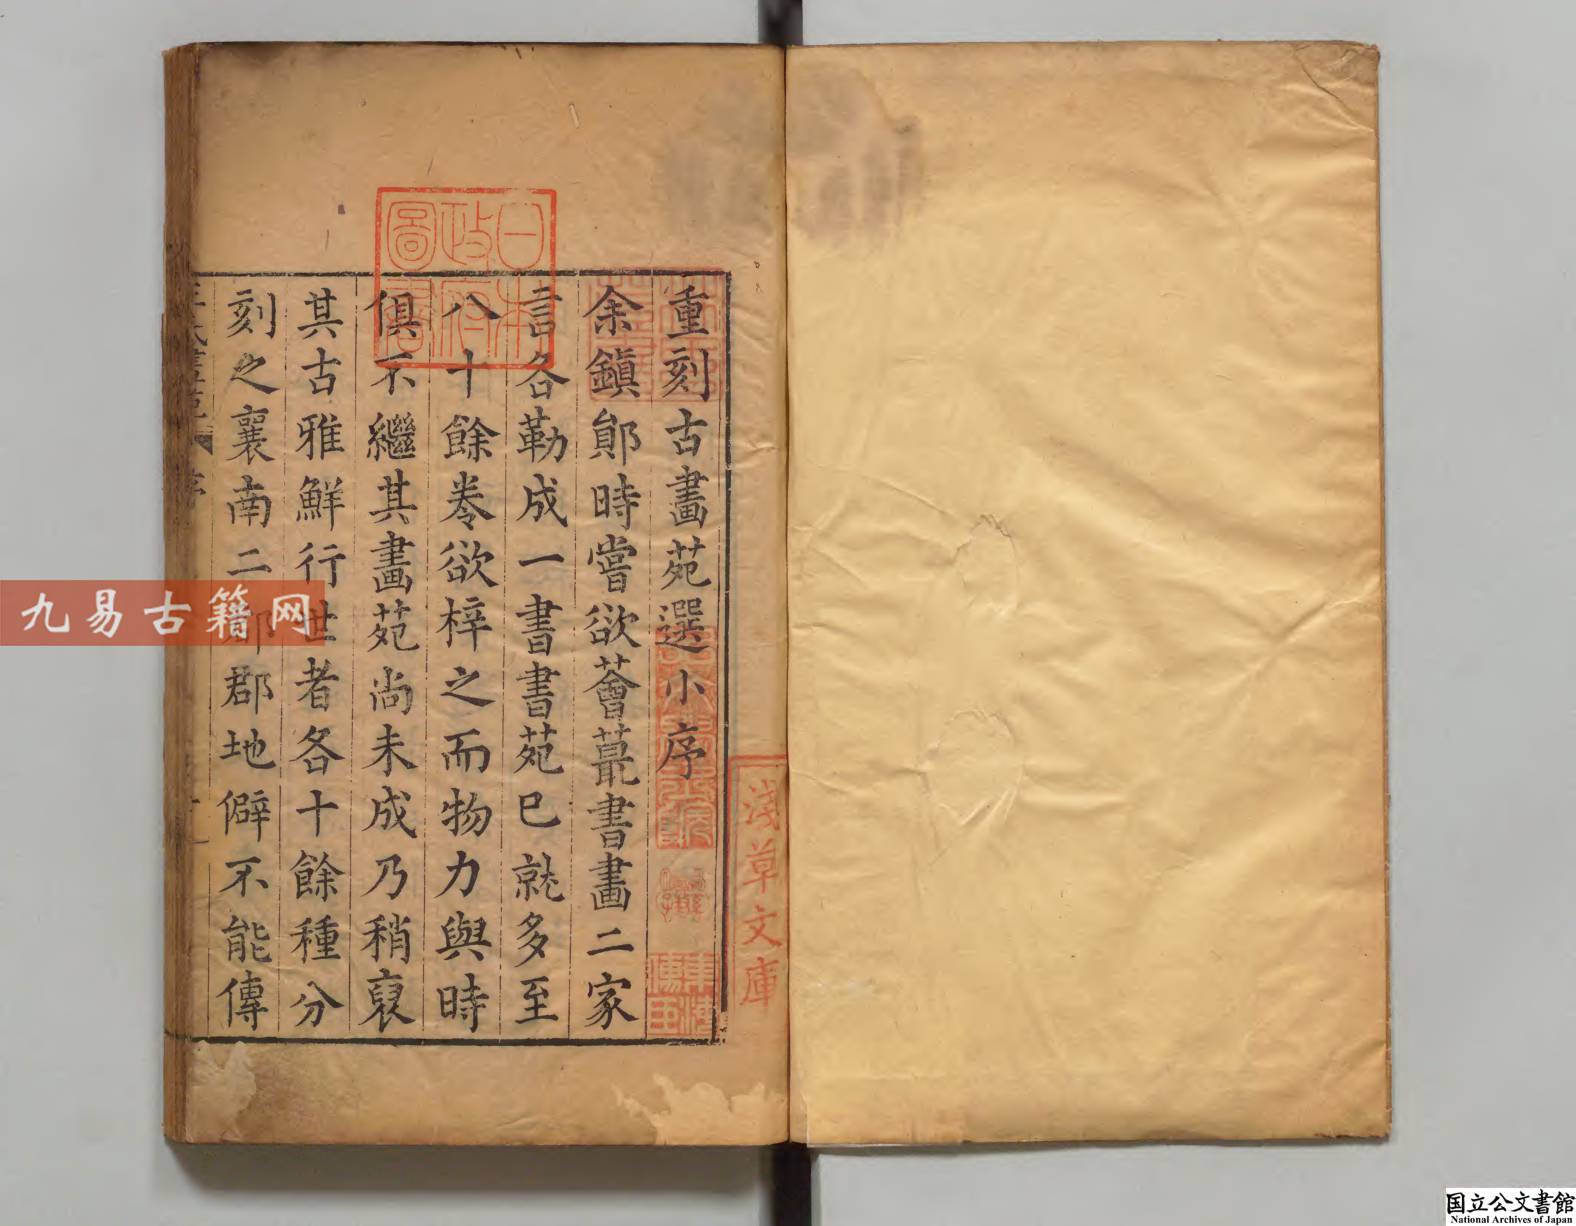 重刻古畫苑選小序
余鎮鄖時嘗欲薈蕞書畫二家
言各勒成一書書苑已就多至
八十餘卷欲梓之而物力與時
俱不繼其畫苑尚未成乃稍裒
其古雅鮮行世者各十餘種分
刻之襄南二郡郡地僻不能傳
王氏畫苑
序
日本
政府
圖書
淺草文庫
九易古籍网
国立公文書館
National Archives of Japan